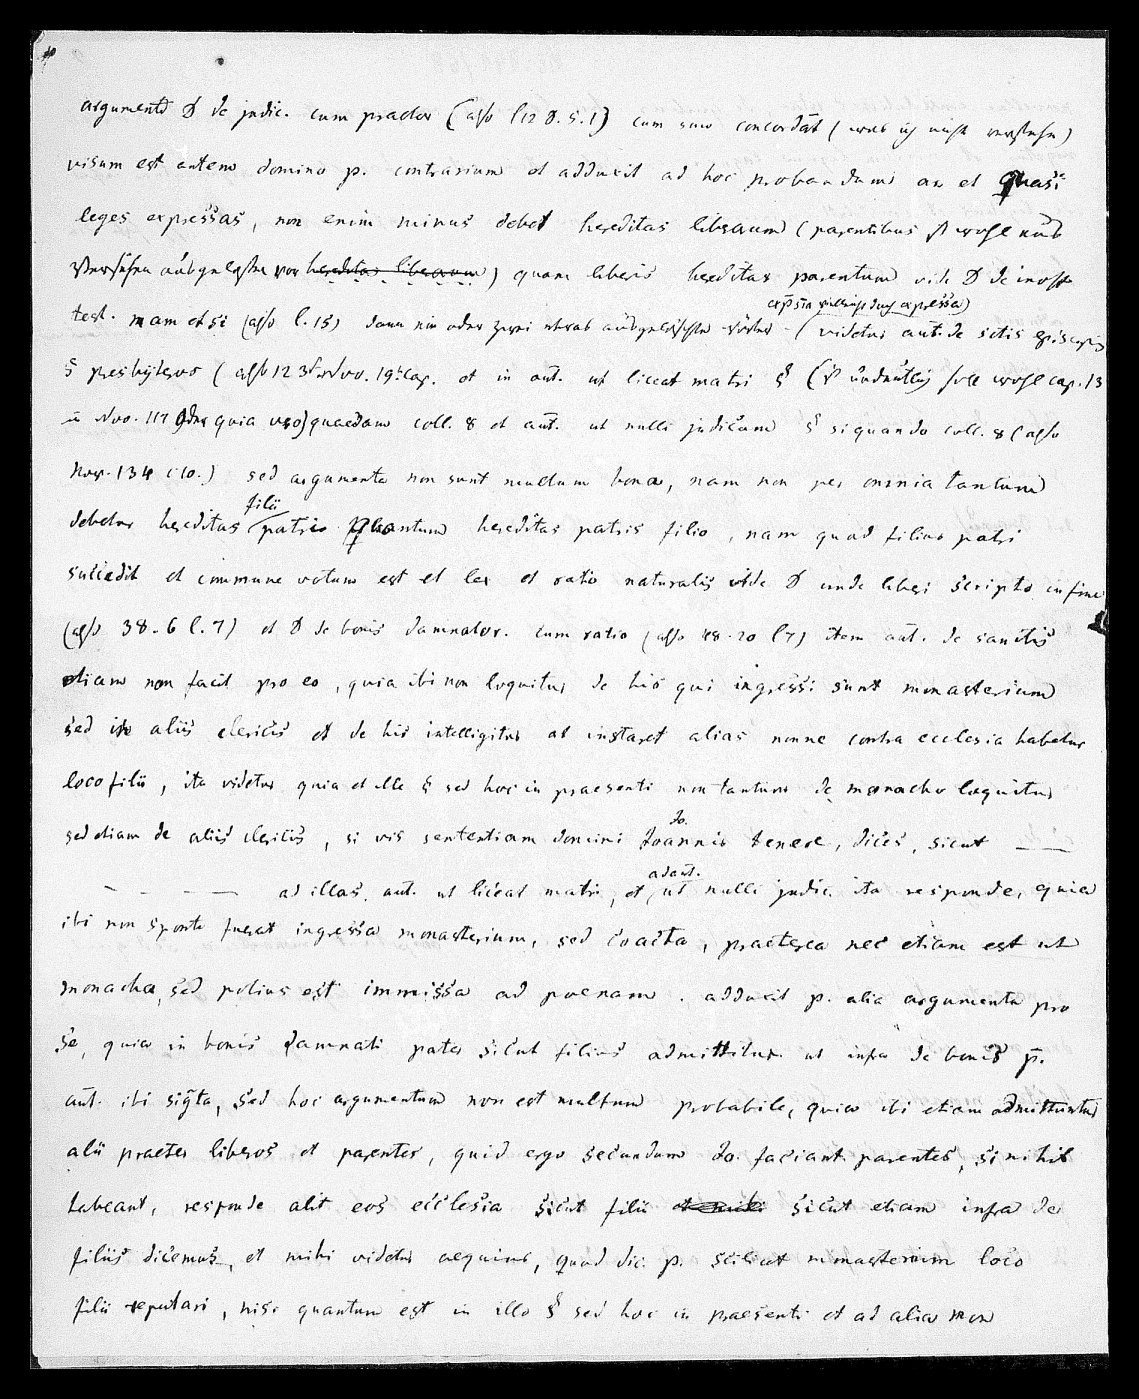 argumento D de judic. cum praetor (also l 12 D. 5. 1) cum suis concordat (was ich nicht verstehe)
visum est autem domino p. contrarium et adducit ad hoc probandum ar et quasi
leges expressas, non enim minus debet hereditas liberum (parentibus ist wohl aus
Versehen ausgelassen vor hereditas liberum) quam liberis hereditas parentum vide D de inoff.
test. nam etsi (also l. 15) dann nur oder zwei etwas ausgelöschte Wörter (videtur aut. de sctis episcopis
§ presbyteros (also 123 Nov. 19. Cap. et in aut. ut liceat matri § (ist undeutlich soll wohl cap. 13
in Nov. 117 oder quia vero) quaedam coll. 8 et aut. ut nulli judicum § si quando coll. 8 (also
Nov. 134 c 10.) sed argumenta non sunt multum bona, nam non per omnia tantum
filii
debetur hereditas patri quantum hereditas patris filio, nam quod filius patri
succedit et commune votum est et lex et ratio naturalis vide D unde liberi scripto in fine
(also 38. 6 l. 7) et D de bonis damnator. cum ratio (also 48. 20 l 7) item aut. de sanctis
etiam non facit pro eo, quia ibi non loquitur de his qui ingressi sunt monasterium
sed in aliis clericis et de his intelligitur at instaret alias nonne contra ecclesia habetur
loco filii, ita videtur quia et ille § sed hoc in praesenti non tantum de monacho loquitur
sed etiam de aliis clericis, si vis sententiam domini Joannis tenere, dices, sicut — —
— — — — ad illas aut. ut liceat matri, et ad aut. ut nulli judic. ita responde, quia
ibi non sponte fuerat ingressa monasterium, sed coacta, praeterea nec etiam est ut
monacha, sed potius est immissa ad poenam. adducit p. alia argumenta pro
se, quia in bonis damnati pater sicut filius admittitur ut infra de bonis p.
aut. ibi signta, sed hoc argumentum non est multum probabile, quia ibi etiam admittuntur
alii praeter liberos et parentes, quid ergo secundum Jo. faciant parentes, si nihil
habeant, responde alit eos ecclesia sicut filii sicut etiam infra de
filiis dicemus, et mihi videtur aequius, quod dic. p. scilicet monasterium loco
filii reputari, nisi quantum est in illo § sed hoc in praesenti et ad alia non